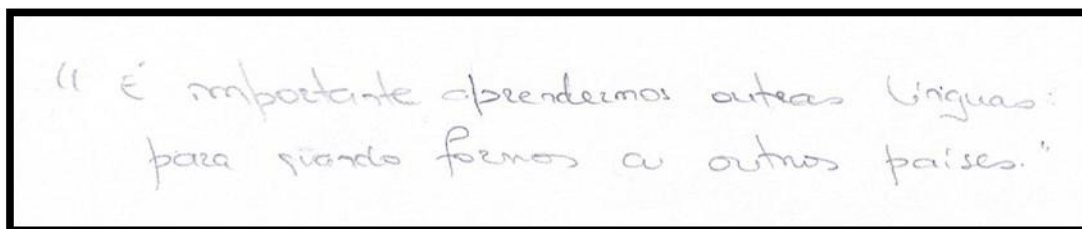 "É importante aprendermos outras línguas:
para quando formos a outros países."